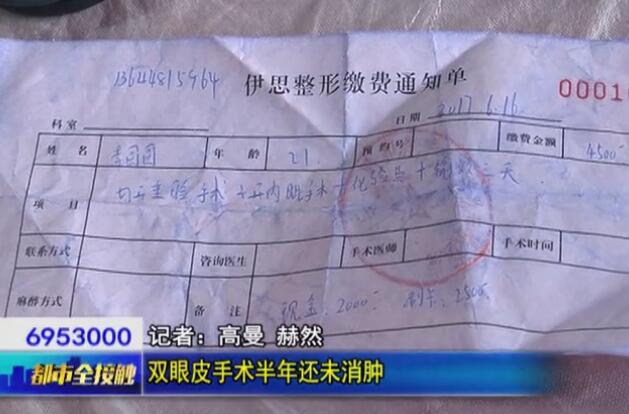 13644815964
伊思整形缴费通知单
0001
科室
日期 2017.6.16
姓名 李园园 年龄 21. 预约号 缴费金额 4500
项目 切开重睑手术+开内眦手术+化验点+输液三天
联系方式 咨询医生 手术医师 手术时间
麻醉方式 备注 现金:2000 刷卡:2500
6953000
记者:高曼 赫然
都市全接触
双眼皮手术半年还未消肿